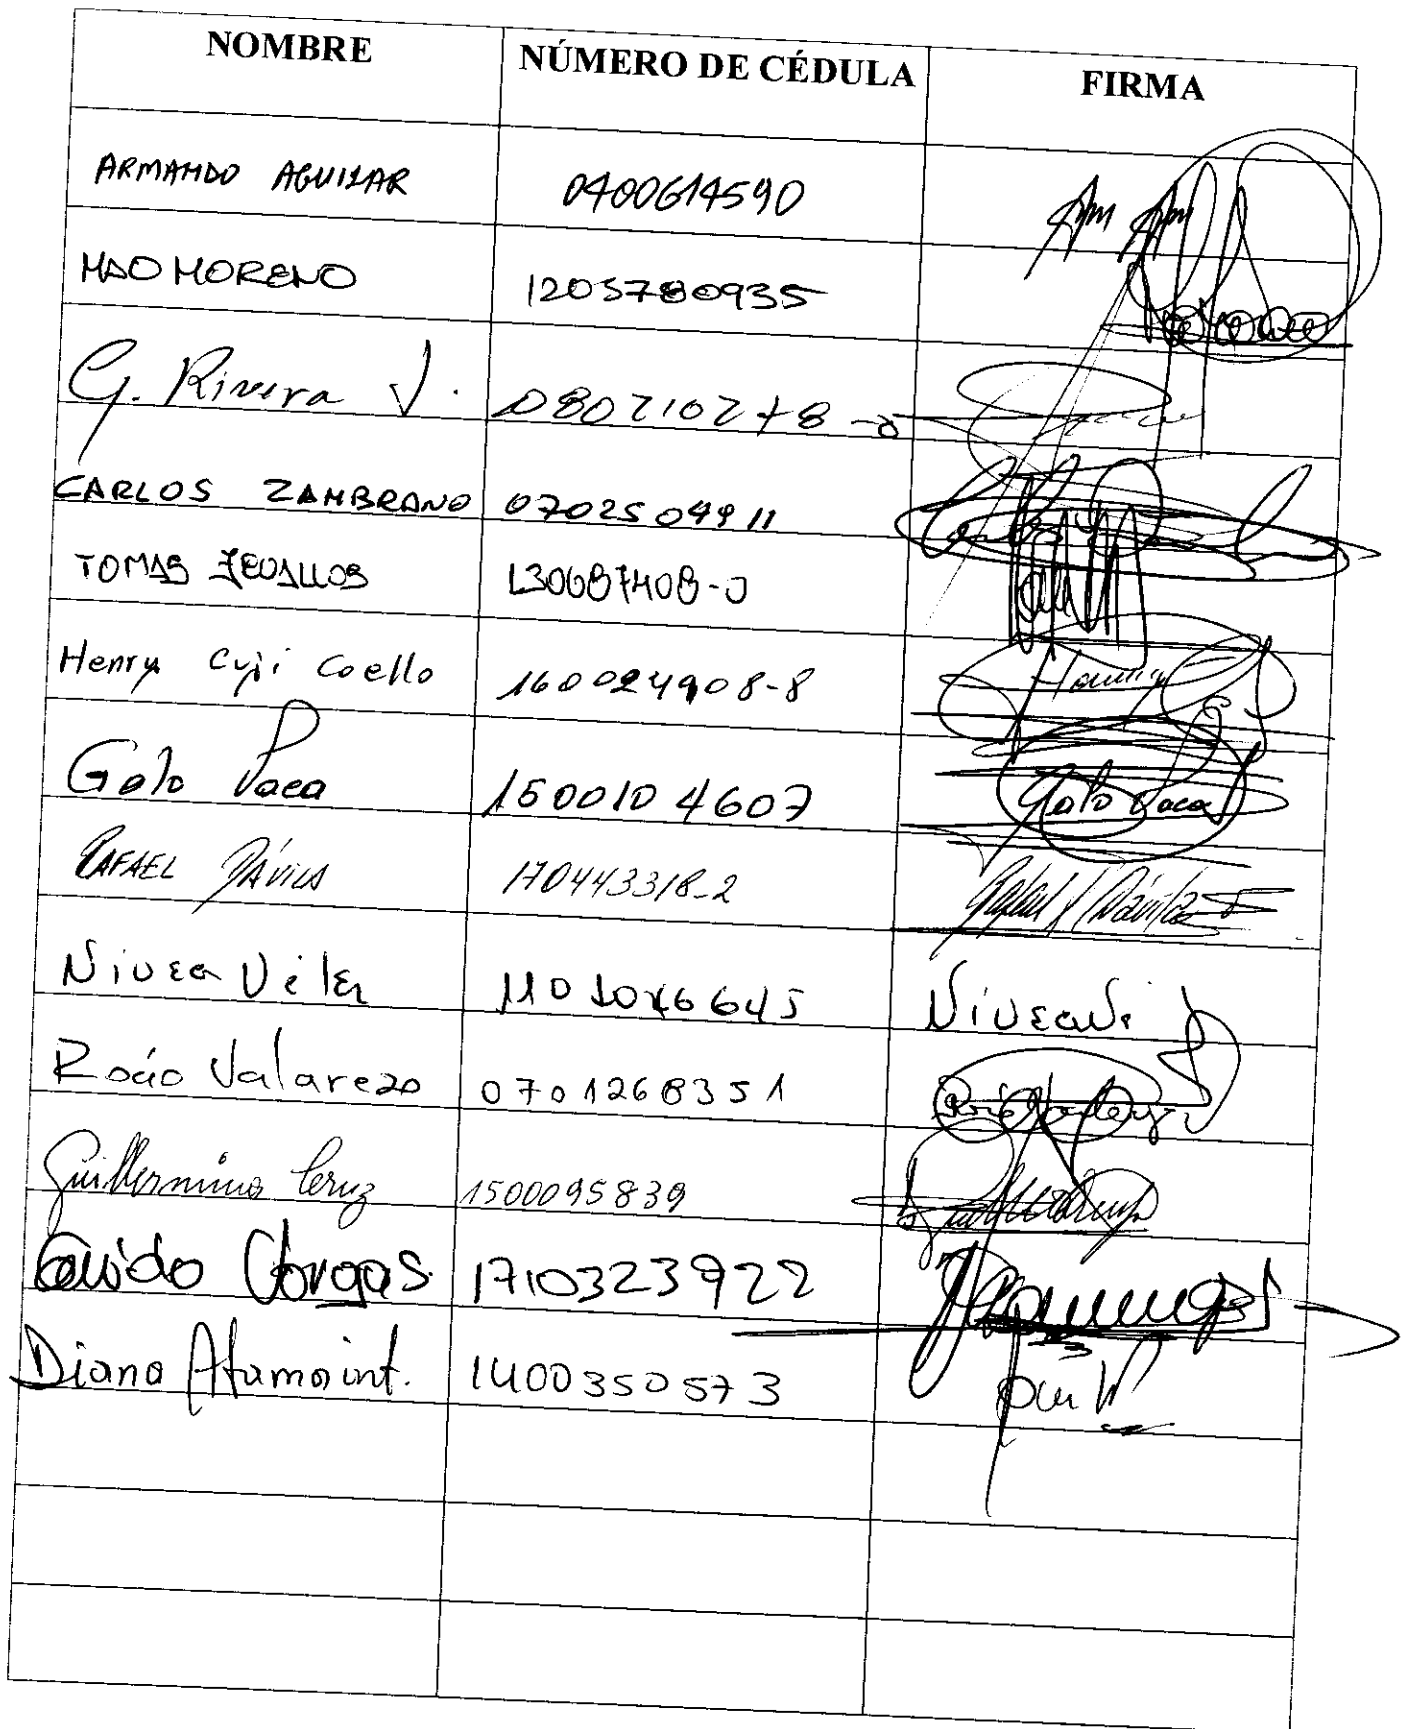 NOMBRE NÚMERO DE CÉDULA FIRMA
ARMANDO AGUILAR 0400614590
MAO MORENO 1205780935
G. Rivera V. 080210278-0
CARLOS ZAMBRANO 0702504911
TOMAS ZEVALLOS 130687408-0
Henry Cuji Coello 160024908-8
Galo Vaca 1500104607 Galo Vaca
RAFAEL DÁVILA 170443318-2 Rafael Dávila
Nivea Vélez 1101046645 Nivea Vé
Rocío Valarezo 0701268351
Guillermina Cruz 1500095839
Guido Vargas 1710323922
Diana Atamaint. 1400350573